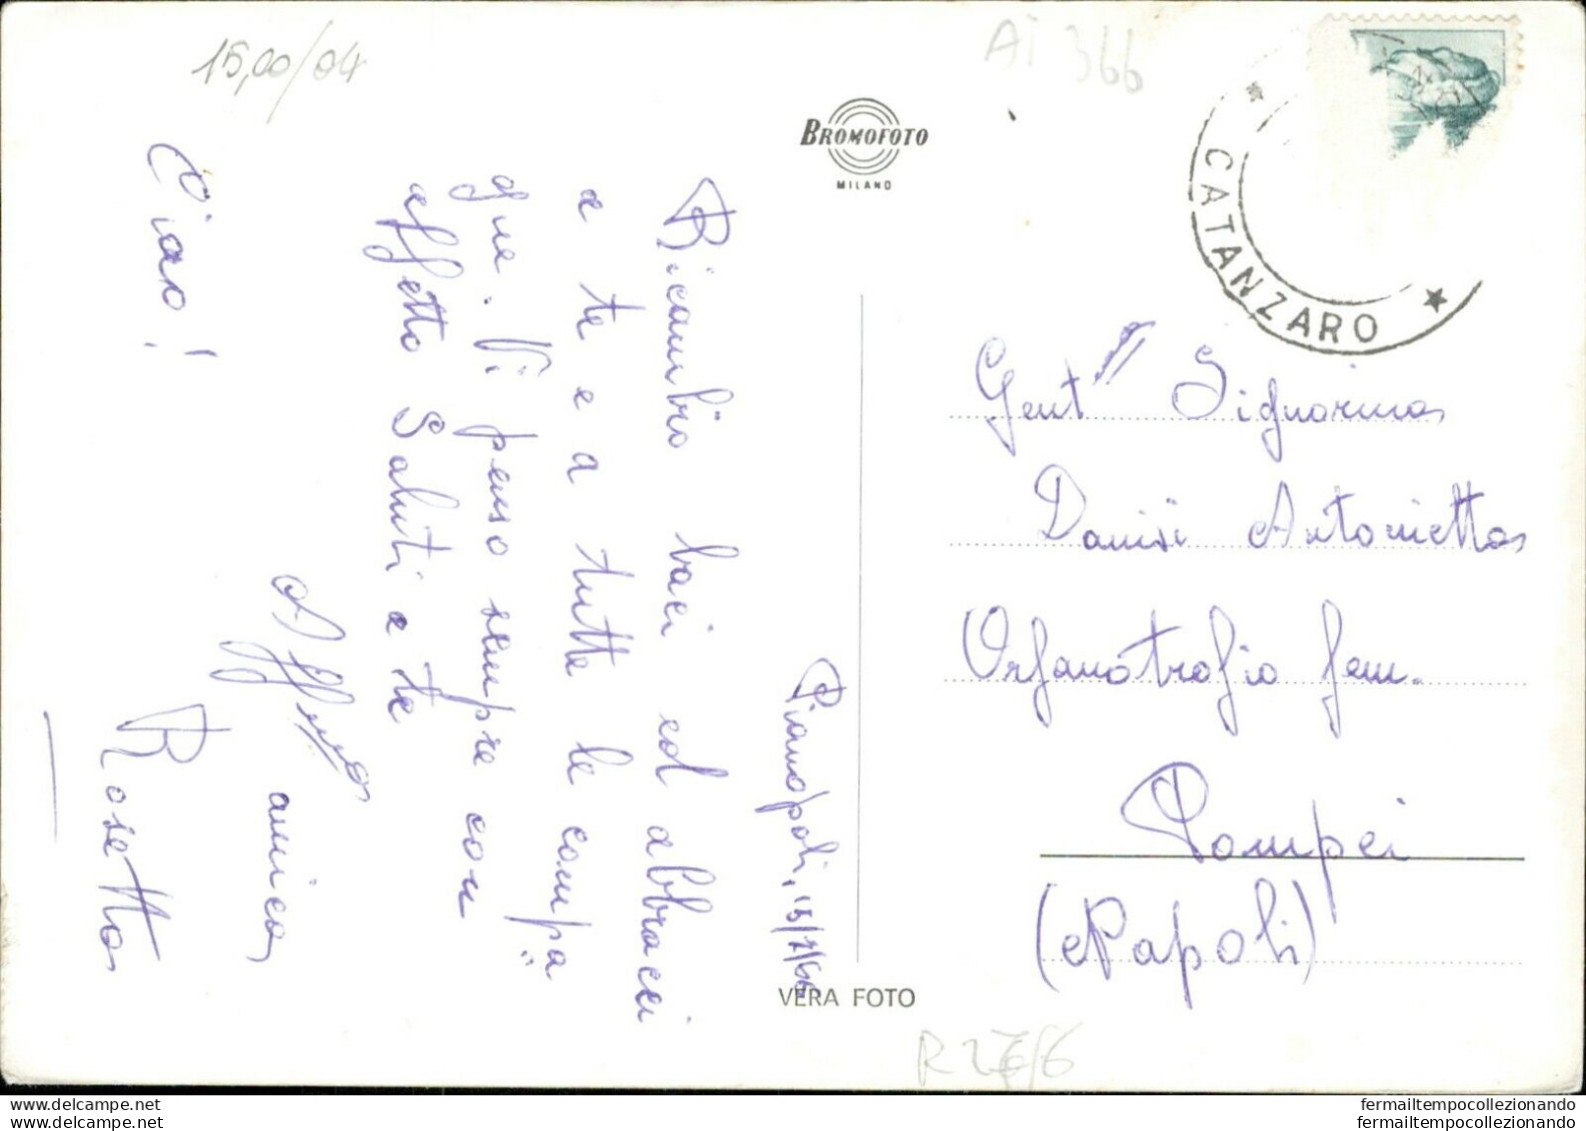 15,00/04
AI 366
BROMOFOTO
MILANO
CATANZARO
Pianopoli, 15/7/66
Ricambio baci ed abbracci
a te e a tutte le compa=
gne. Vi penso sempre con
affetto Saluti a te
Aff.ma
amica
Ciao!
Rosetta
Gent Signorina
Danisi Antonietta
Orfanotrofio fem.
Pompei
(Napoli)
VERA FOTO
fermailtempocollezionando
fermailtempocollezionando
www.delcampe.net
fermailtempocollezionando
fermailtempocollezionando